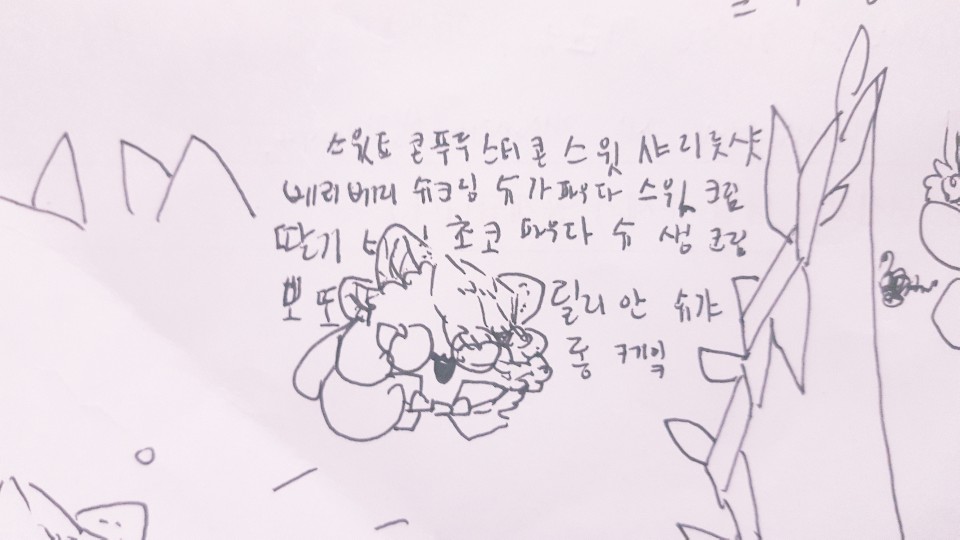 스윗토 콜푸두 스터콘 스윗 샤리롯샷
베리베리 슈크님 슈가파우다 스윗 크림
딸기 초코 파우다 슈 생 크림
뽀또 딜리안 슈가
롱 케잌